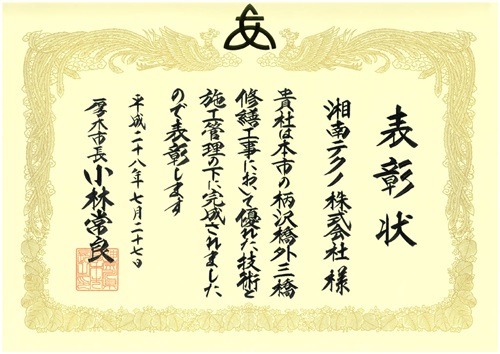 表彰状
湘南テクノ株式会社 様
貴社は本市の柄沢橋外三橋
修繕工事において優れた技術と
施工管理の下に完成されました
ので表彰します
平成二十八年七月二十七日
厚木市長 小林常良